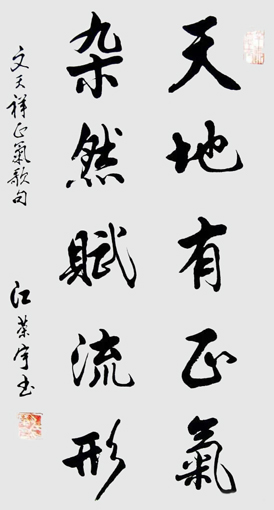 天地有正氣
杂然賦流形
文天祥正氣歌句
江荣宇书